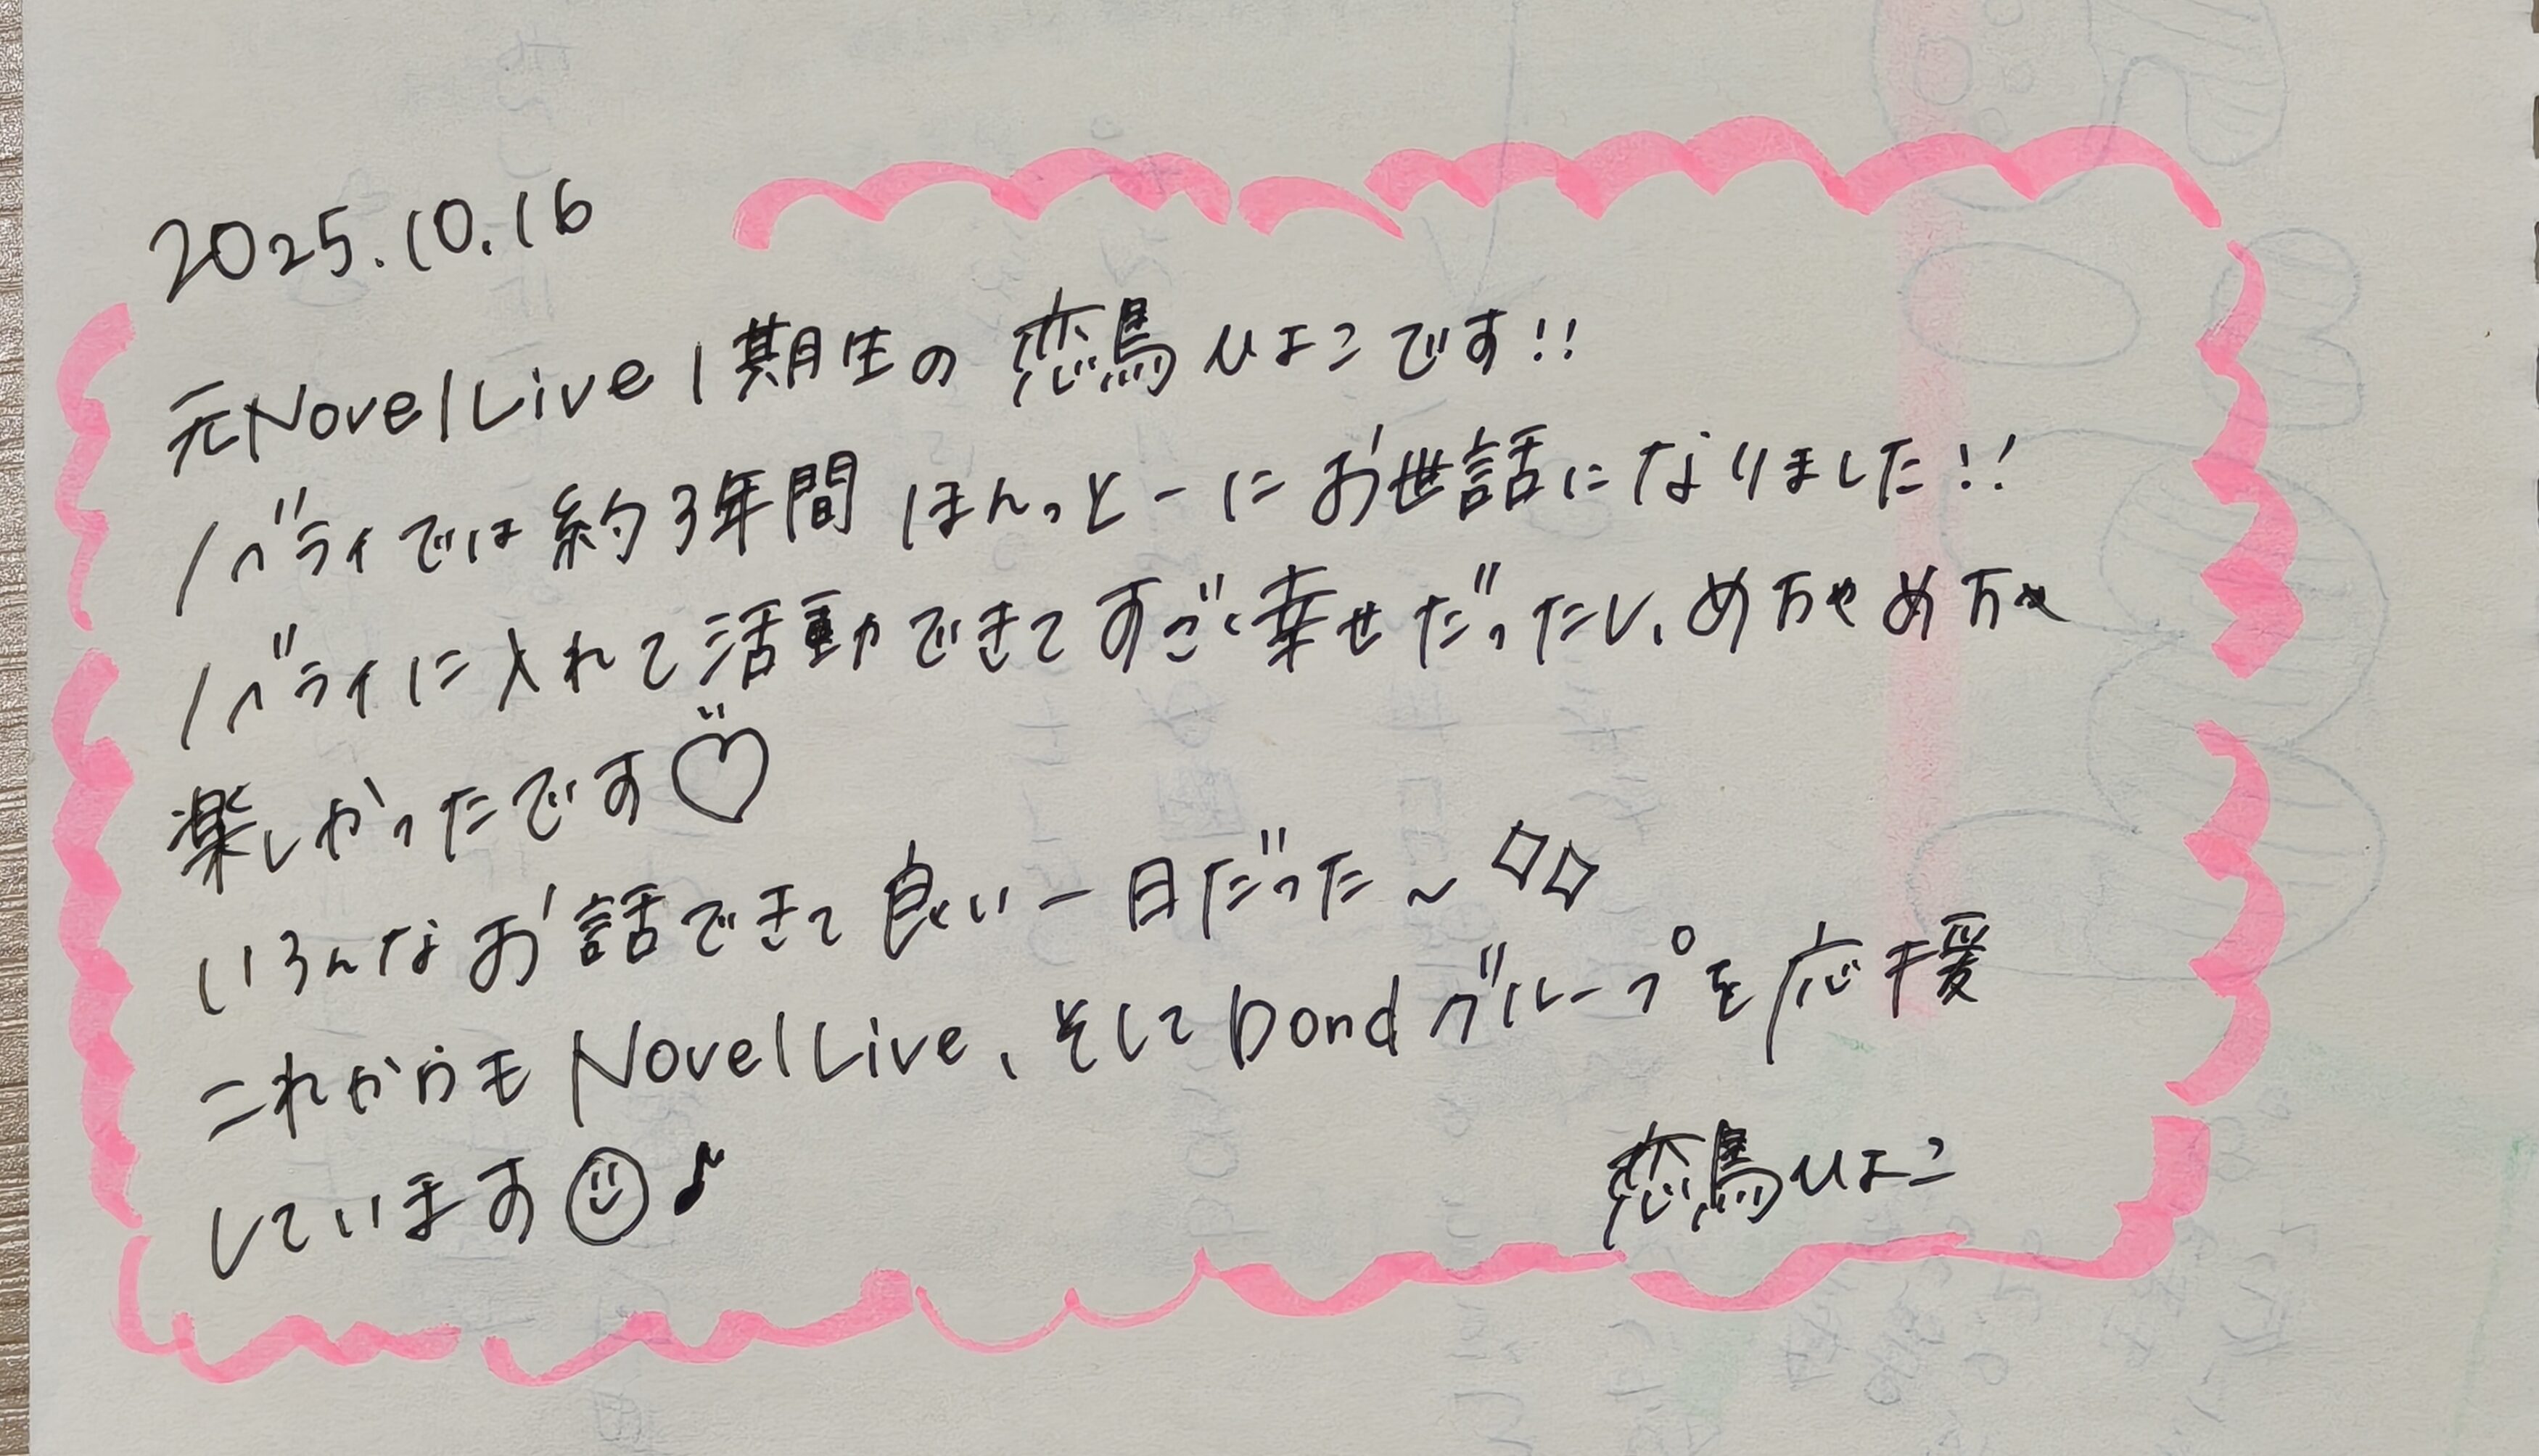 2025.10.16
元NovelLive1期生の恋鳥ひよこです!!
ノベライでは約3年間ほんっとーにお世話になりました!!
ノベライに入れて活動できてすごく幸せだったし、めちゃめちゃ
楽しかったです♡
いろんなお話できて良い一日だった〜◇◇
これからもNovelLive、そしてbondグループを応援
しています☺♪
恋鳥ひよこ